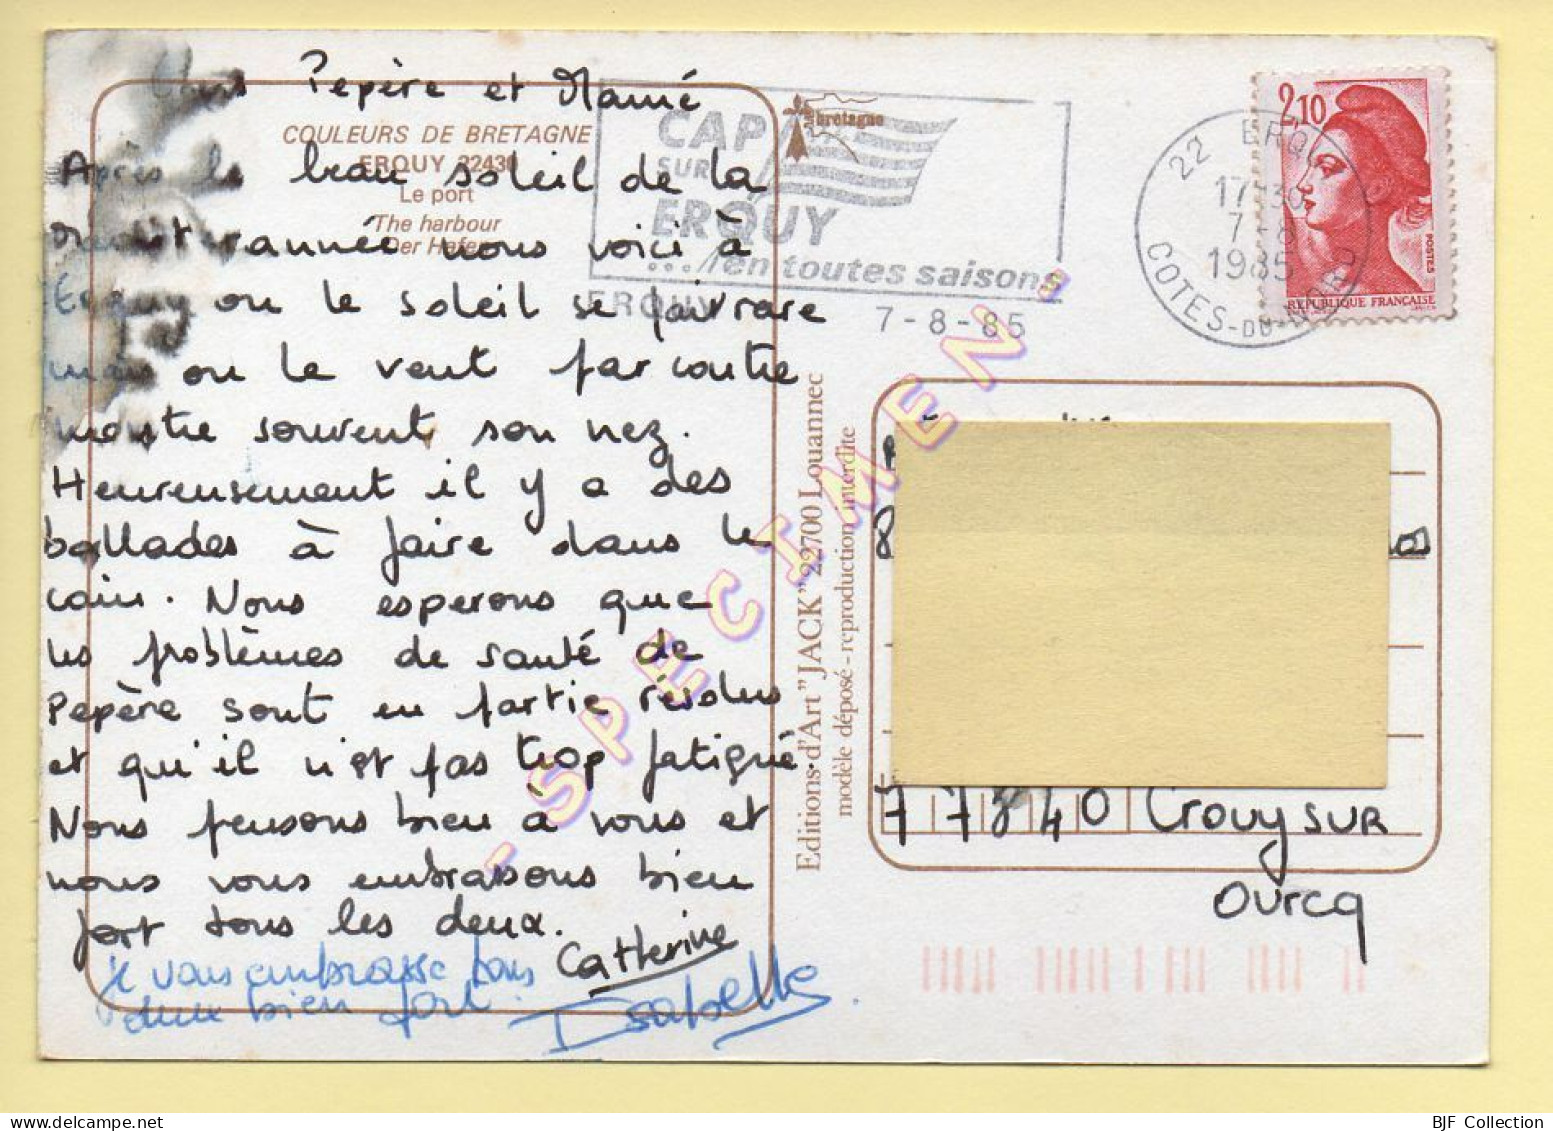 Chers Pepère et Mamé
COULEURS DE BRETAGNE
ERQUY 22430
Le port
The harbour
Der Hafen
Après le beau soleil de la
Méditerrannée nous voici à
Erquy ou le soleil se fait rare
mais ou le vent par contre
montre souvent son nez.
Heureusement il y a des
ballades à faire dans le
coin. Nous esperons que
les problèmes de santé de
Pepère sont en partie résolus
et qu'il n'est pas trop fatigué.
Nous pensons bien à vous et
nous vous embrassons bien
fort tous les deux.
Catherine
je vous embrasse tous
deux bien fort.
Isabelle
bretagne
CAP
SUR
ERQUY
.../en toutes saisons
ERQUY
7-8-85
22 ERQUY
17-30
7-8
1985
COTES-DU-NORD
2,10
POSTES
REPUBLIQUE FRANÇAISE
- SPECIMEN -
Editions d'Art "JACK" 22700 Louannec
modèle déposé - reproduction interdite
77840 Crouy SUR
OURCQ
BJF Collection